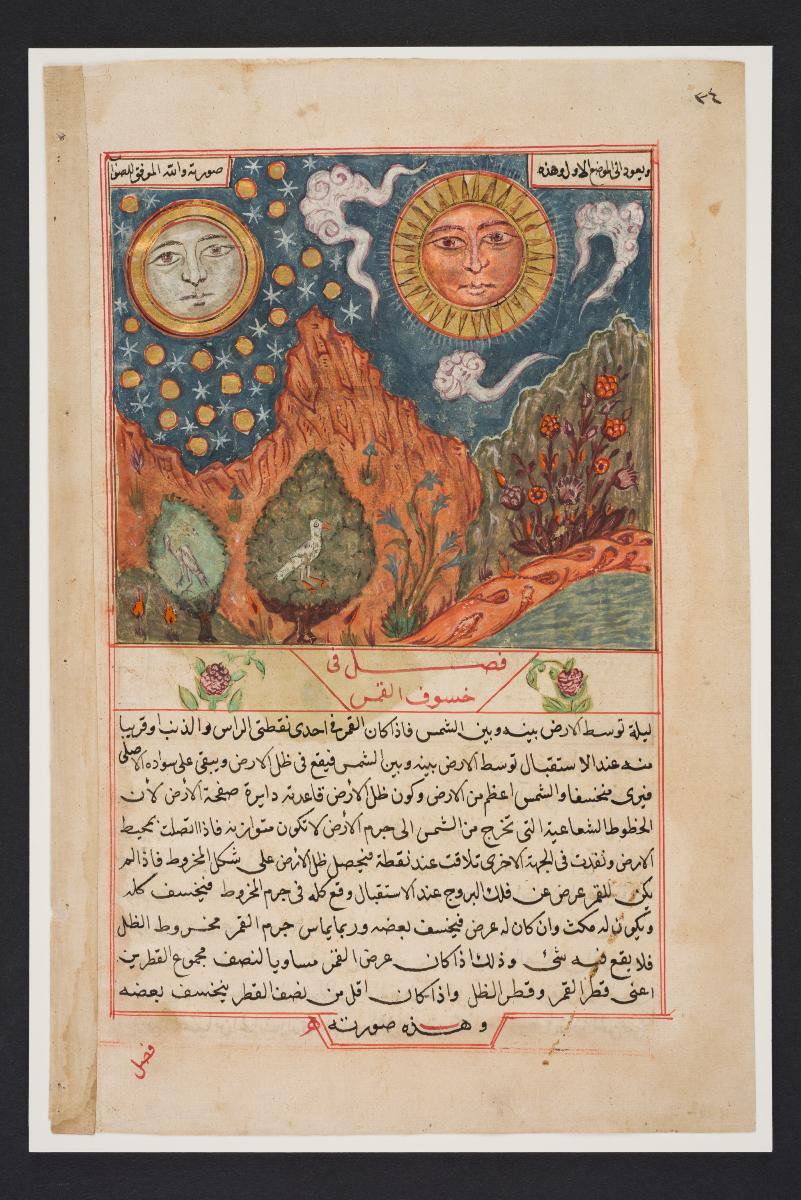 ٣٤
ويعود الى الموضع الاول وهذه
صورته والله الموفق للصواب
فصل فى
خسوف القمر
ليلة توسط الارض بينه وبين الشمس فاذا كان القمر فى احدى نقطتى الراس والذنب او قريبا
منه عند الاستقبال توسط الارض بينه وبين الشمس فيقع فى ظل الارض ويبقى على سواده الاصلى
فيرى منخسفا والشمس اعظم من الارض وكون ظل الارض قاعدته دايرة صفحة الارض لان
الخطوط الشعاعية التى تخرج من الشمس الى جرم الارض لا تكون متوازية فاذا اتصلت بمحيط
الارض ونفدت فى الجهة الاخرى تلاقت عند نقطة فيحصل ظل الارض على شكل المخروط فاذا لم
يكن للقمر عرض عن فلك البروج عند الاستقبال وقع كله فى جرم المخروط فيخسف كله
ويكون له مكث وان كان له عرض فيخسف بعضه وربما يماس جرم القمر مخروط الظل
فلا يقع فيه شئ وذلك اذا كان عرض القمر مساويا لنصف مجموع القطرين
اعنى قطر القمر وقطر الظل واذا كان اقل من نصف القطر ينخسف بعضه
وهذه صورته
فصل